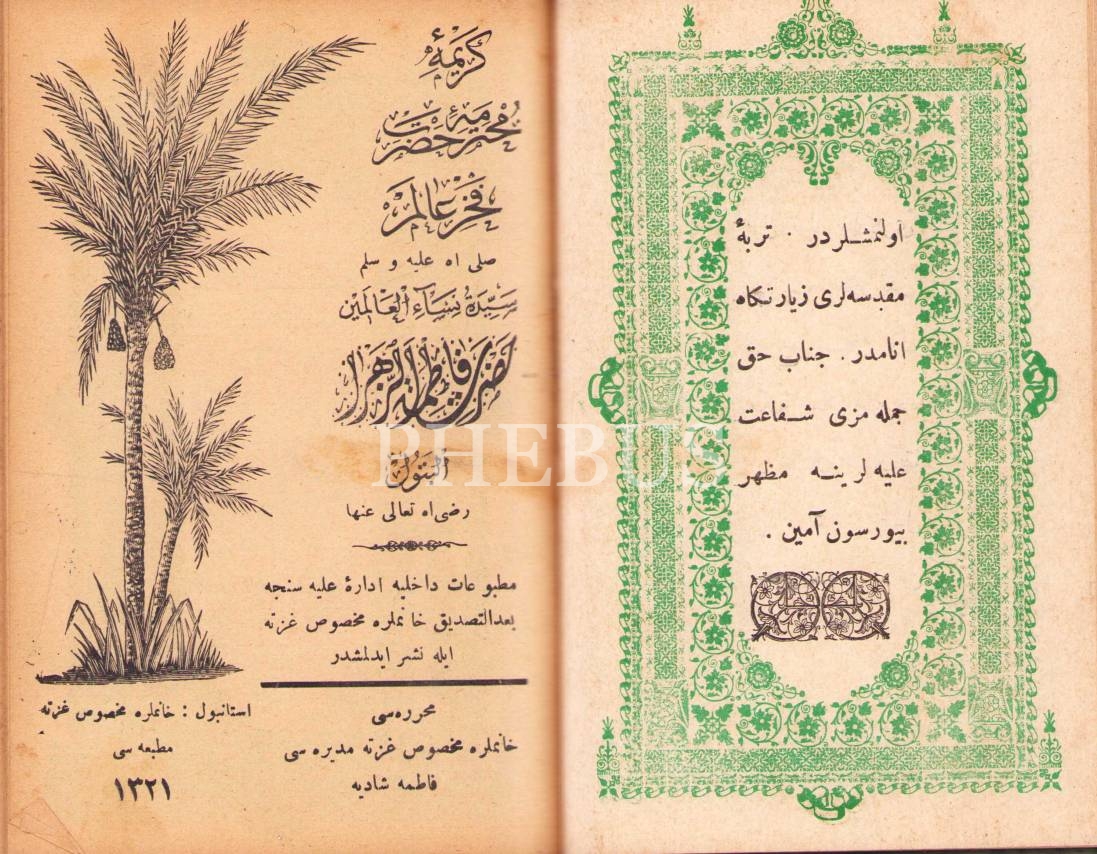 اولنمشلردر . تربهٔ
مقدسه‌لری زیارتکاه
انامدر. جناب حق
جمله مزی شفاعت
علیه لرینه مظهر
بیورسون آمین .
كریمهٔ
مُحترمهٔ حضرت
فخر عالم
صلی اه علیه و سلم
سیّدة نسآء العالمین
حضرت فاطمة الزهرا
البتول
رضی اه تعالی عنها
مطبوعات داخلیه ادارهٔ علیه سنجه
بعدالتصدیق خانملره مخصوص غزته
ایله نشر ایدلمشدر
محرره‌سی
خانملره مخصوص غزته مدیره سی
فاطمه شادیه
استانبول : خانملره مخصوص غزته
مطبعه سی
١٣٢١
PHEBUS